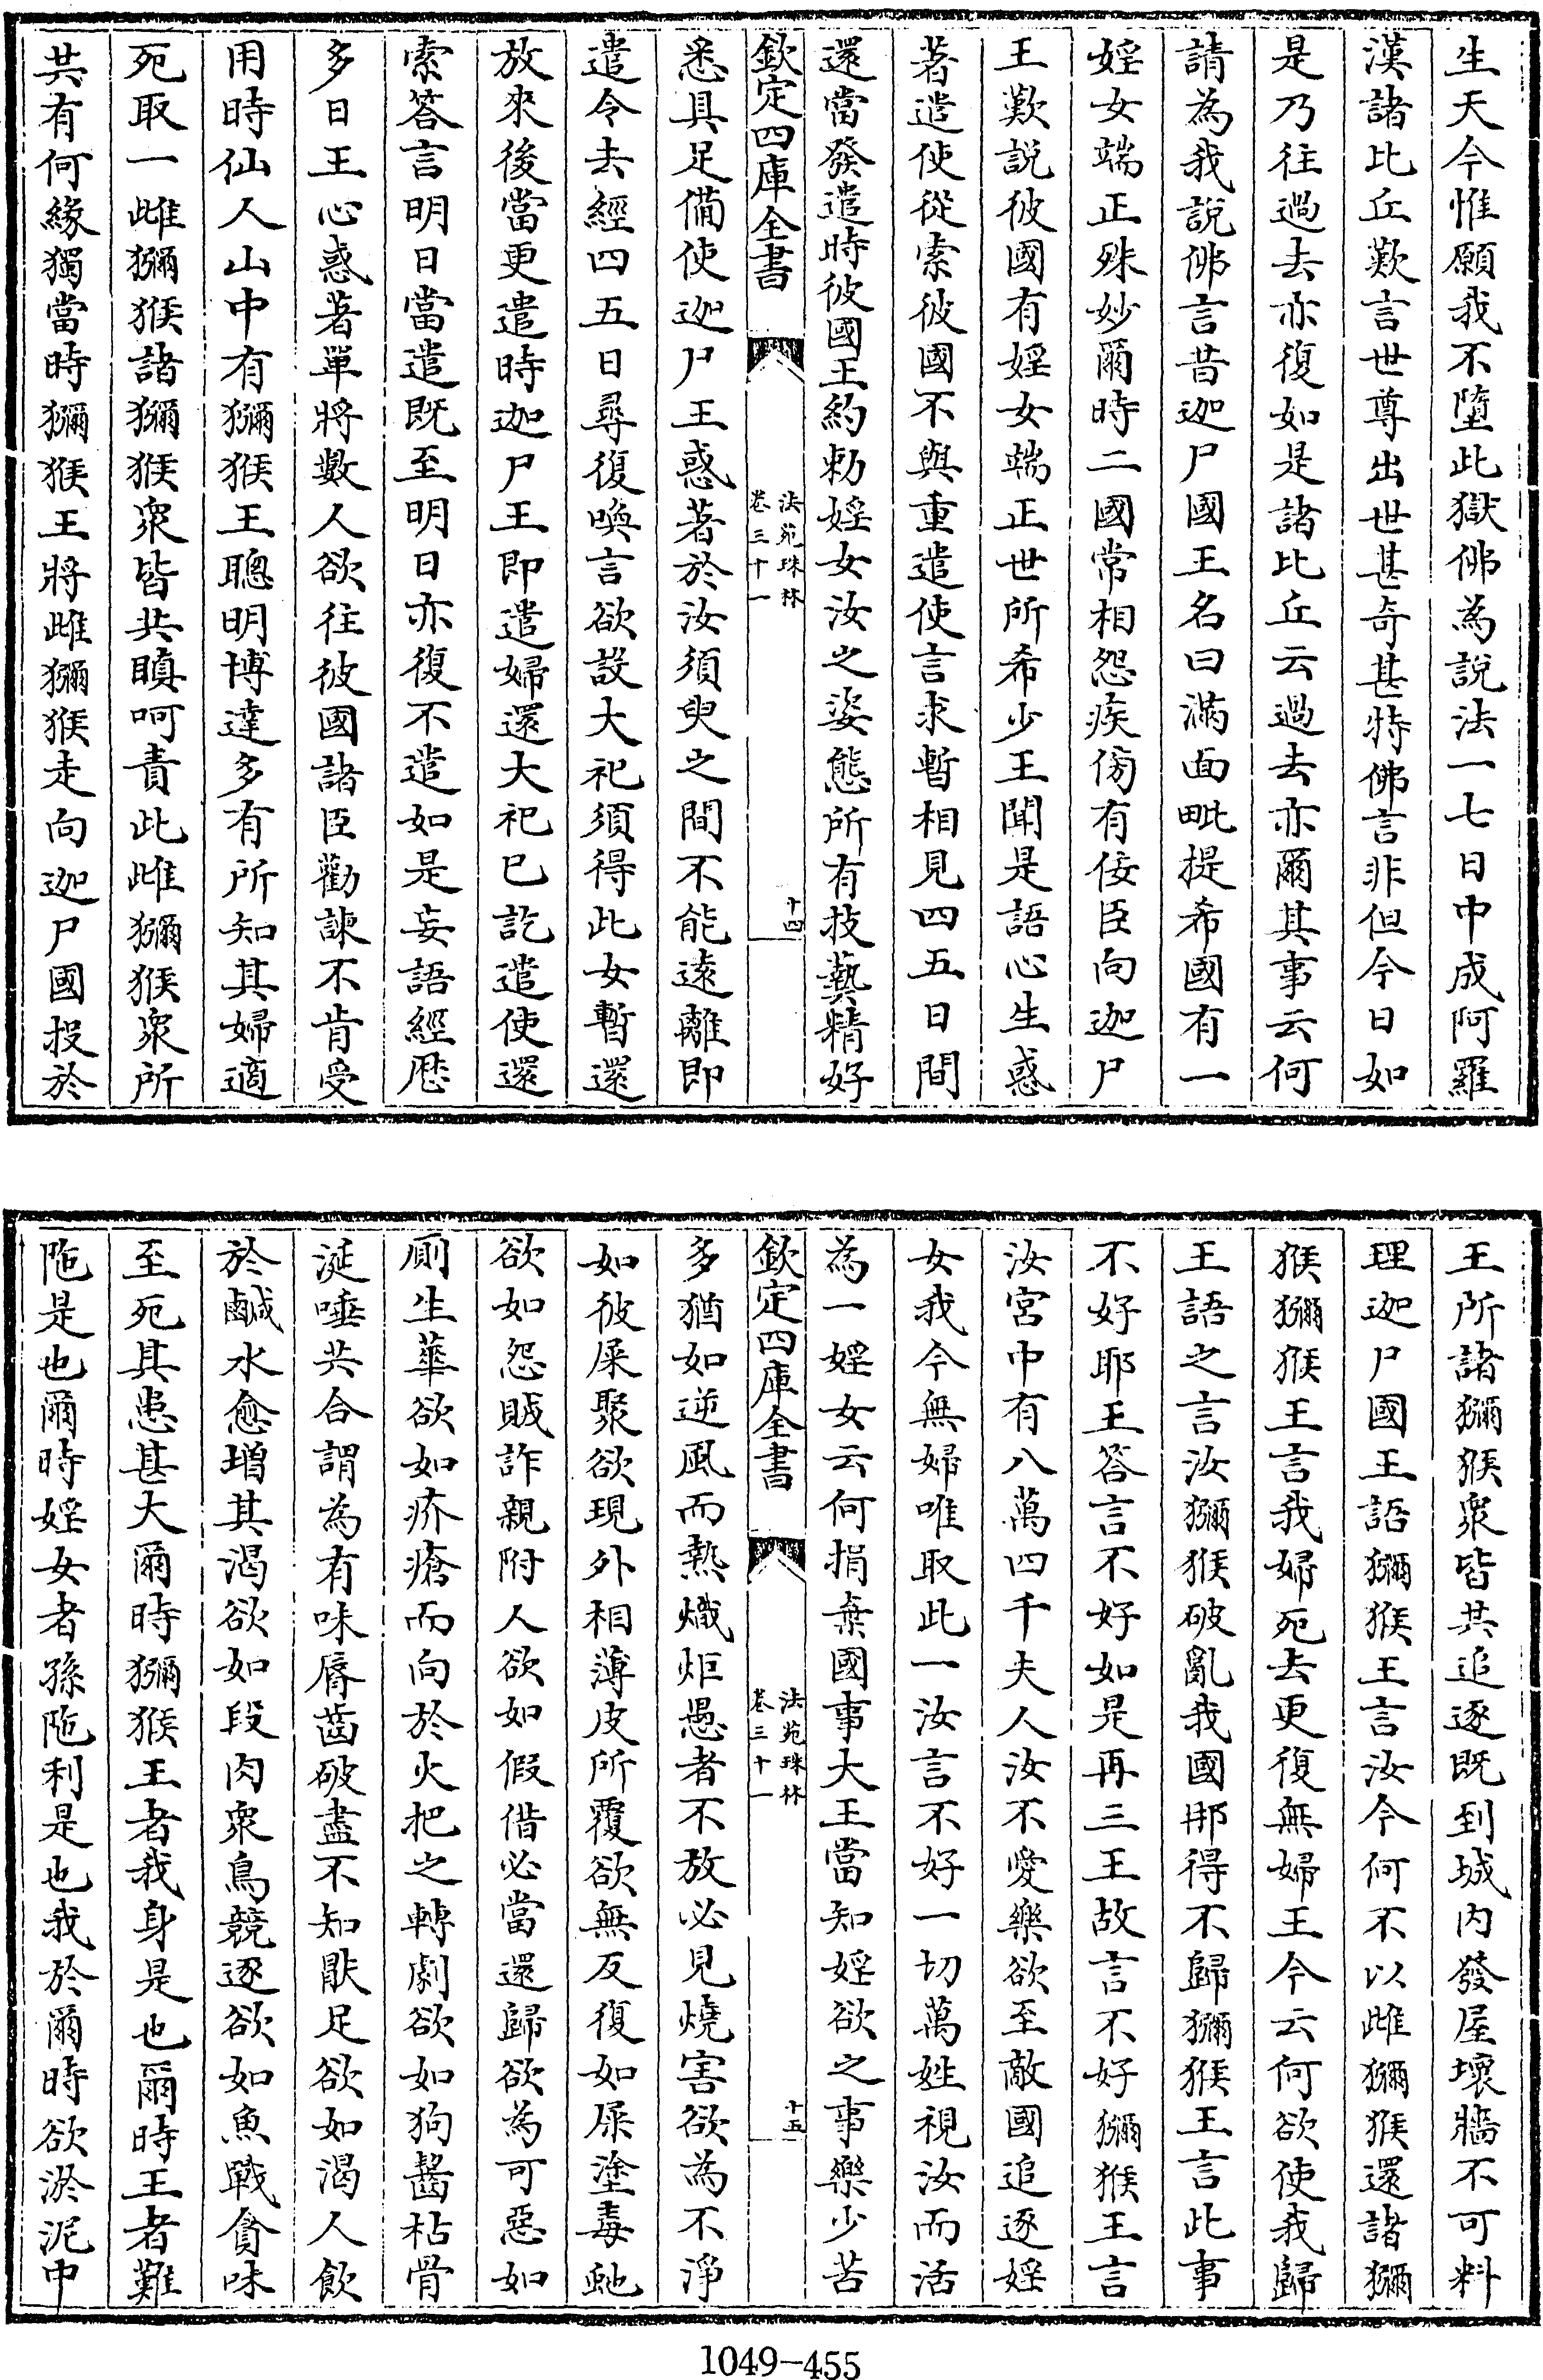 生天今惟願我不墮此獄佛為説法一七日中成阿羅
漢諸比丘歎言世尊出世甚竒甚特佛言非但今日如
是乃往過去亦復如是諸比丘云過去亦爾其事云何
請為我説佛言昔迦尸國王名曰滿面毗提希國有一
婬女端正殊妙爾時二國常相怨疾傍有佞臣向迦尸
王歎説彼國有婬女端正世所希少王聞是語心生惑
著遣使從索彼國不與重遣使言求暫相見四五日間
還當發遣時彼國王約勅婬女汝之姿態所有技藝精好
欽定四庫全書
法苑珠林
卷三十一
十四
悉具足備使迦尸王惑著於汝須臾之間不能逺離即
遣令去經四五日尋復喚言欲設大祀須得此女暫還
放來後當更遣時迦尸王即遣婦還大祀已訖遣使還
索答言明日當遣既至明日亦復不遣如是妄語經歴
多日王心惑著單將數人欲往彼國諸臣勸諫不肯受
用時仙人山中有獼猴王聰明博達多有所知其婦適
死取一雌獼猴諸獼猴衆皆共瞋呵責此雌獼猴衆所
共有何緣獨當時獼猴王將雌獼猴走向迦尸國投於
王所諸獼猴衆皆共追逐既到城内發屋壞牆不可料
理迦尸國王語獼猴王言汝今何不以雌獼猴還諸獼
猴獼猴王言我婦死去更復無婦王今云何欲使我歸
王語之言汝獼猴破亂我國那得不歸獼猴王言此事
不好耶王答言不好如是再三王故言不好獼猴王言
汝宮中有八萬四千夫人汝不愛樂欲至敵國追逐婬
女我今無婦唯取此一汝言不好一切萬姓視汝而活
為一婬女云何捐棄國事大王當知婬欲之事樂少苦
欽定四庫全書
法苑珠林
卷三十一
十五
多猶如逆風而熱熾炬愚者不放必見燒害欲為不淨
如彼屎聚欲現外相薄皮所覆欲無反復如屎塗毒虵
欲如怨賊詐親附人欲如假借必當還歸欲為可惡如
厠生華欲如疥瘡而向於火把之轉劇欲如狗齧枯骨
涎唾共合謂為有味脣齒破盡不知厭足欲如渴人飲
於鹹水愈增其渴欲如段肉衆鳥競逐欲如魚戰貪味
至死其患甚大爾時獼猴王者我身是也爾時王者難
陁是也爾時婬女者孫陁利是也我於爾時欲淤泥中
1049-455